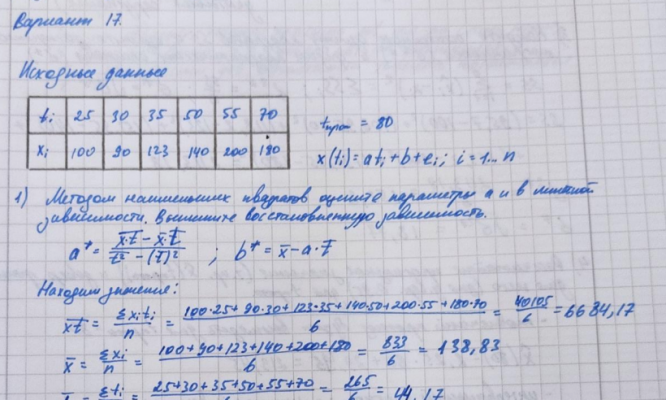 Вариант 17.
Исходные данные
ti 25 30 35 50 55 70
xi 100 90 123 140 200 180
tпрог = 80
x(ti) = ati + b + ei; i = 1... n
1) Методом наименьших квадратов оцените параметры a и b в линейной
зависимости. Выпишите восстановленную зависимость.
a* = (x̄·t̄ - x̄·t̄) / (t̄² - (t̄)²) ; b* = x̄ - a·t̄
Находим значения:
x̄t̄ = Σxiti / n = (100·25 + 90·30 + 123·35 + 140·50 + 200·55 + 180·70) / 6 = 40105 / 6 = 6684,17
x̄ = Σxi / n = (100+90+123+140+200+180) / 6 = 833 / 6 = 138,83
t̄ = Σti / n = (25+30+35+50+55+70) / 6 = 265 / 6 = 44,17